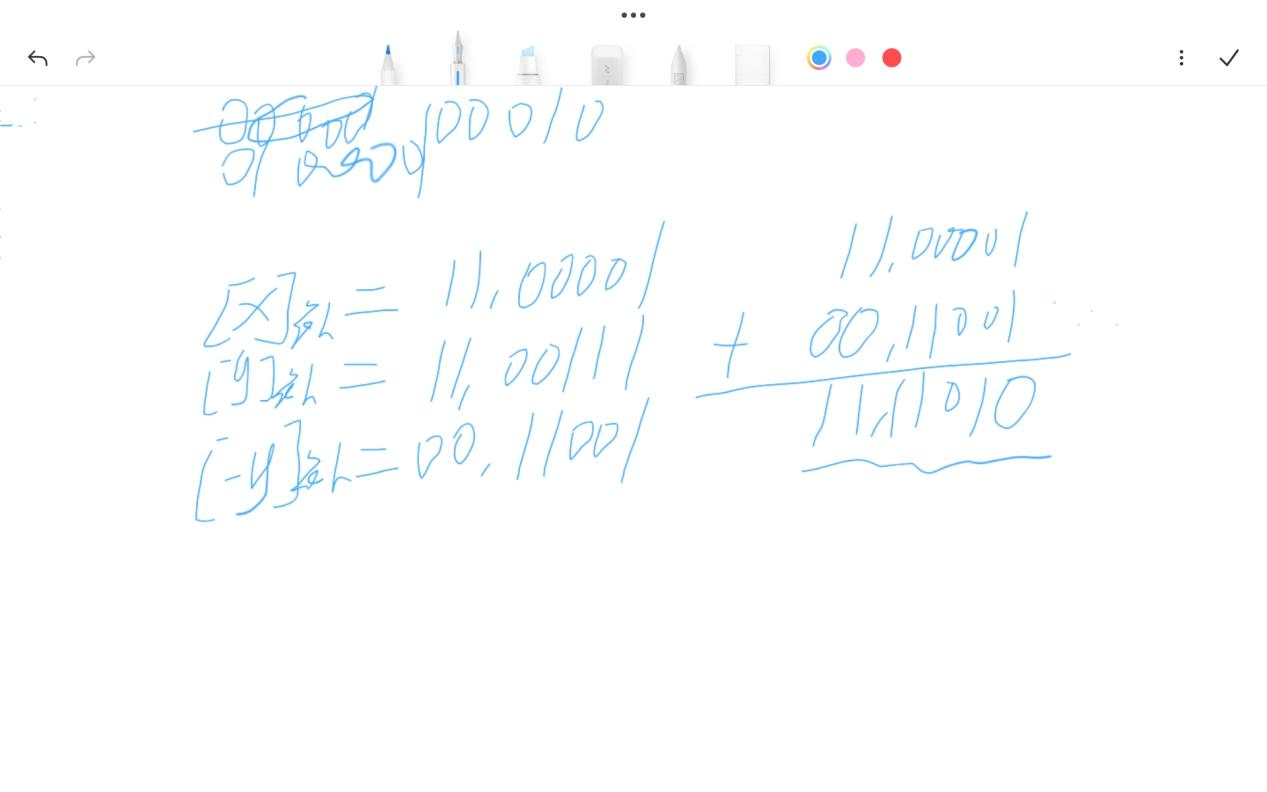 100010
[x]补 = 11,00001
[y]补 = 11,00111
[-y]补 = 00,11001
11,00001
+ 00,11001
11,11010